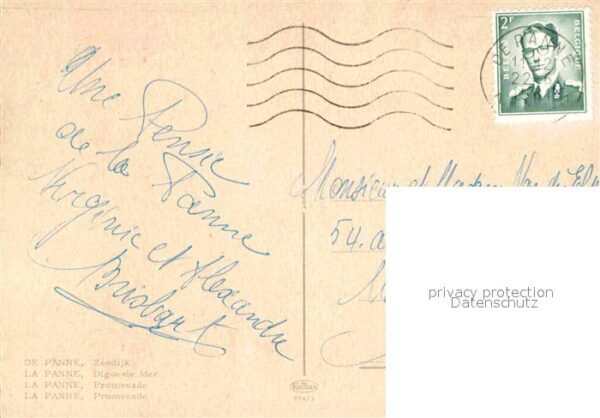 Une Pensée
de la Panne
Virginie et Alexandre
Monsieur et Madame
54.
2F
BELGIE
BELGIQUE
DE PANNE
privacy protection
Datenschutz
DE PANNE, Zeedijk
LA PANNE, Digue de Mer
LA PANNE, Promenade
LA PANNE, Promenade
994/3